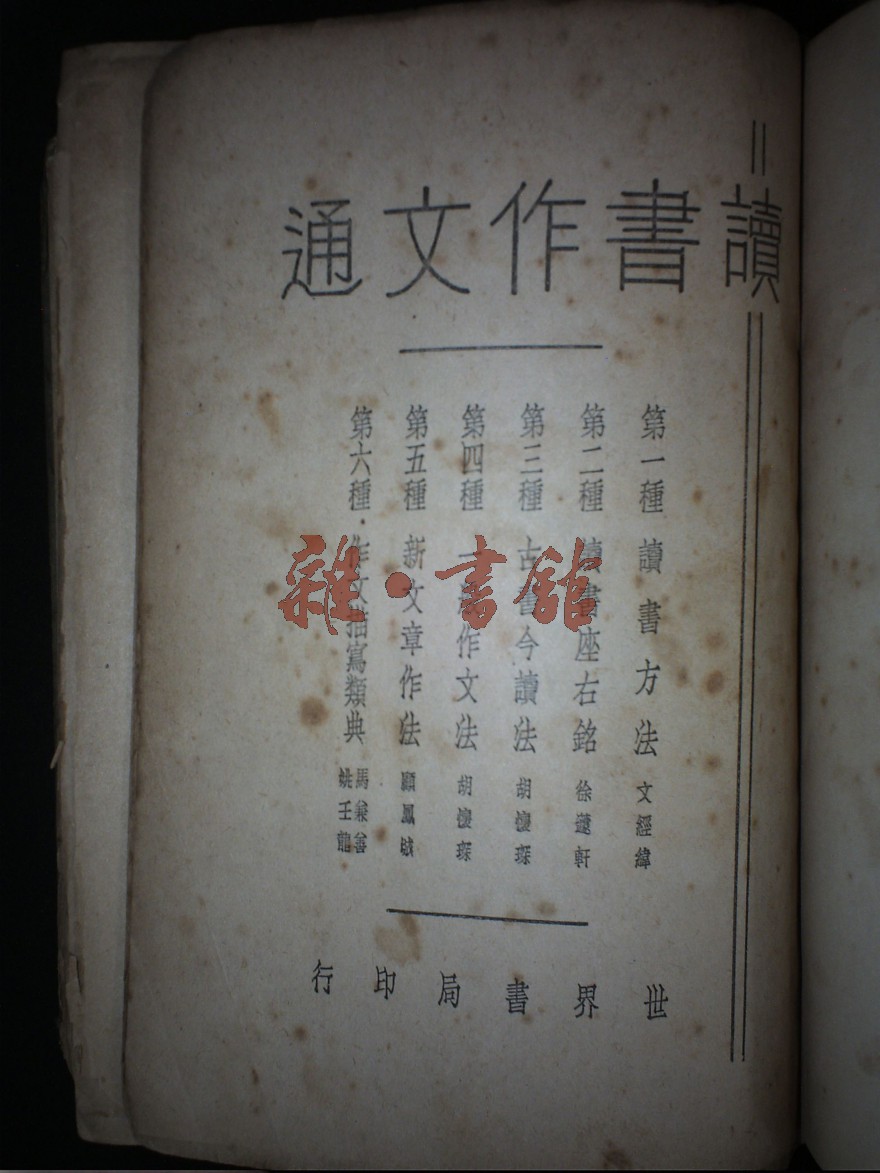 讀書作文通
第一種 讀書方法 文經緯
第二種 讀書座右銘 徐蘧軒
第三種 古書今讀法 胡懷琛
第四種 一般作文法 胡懷琛
第五種 新文章作法 顧鳳城
第六種·作文描寫類典 馬兼善
姚壬龍
世界書局印行
雜·書館